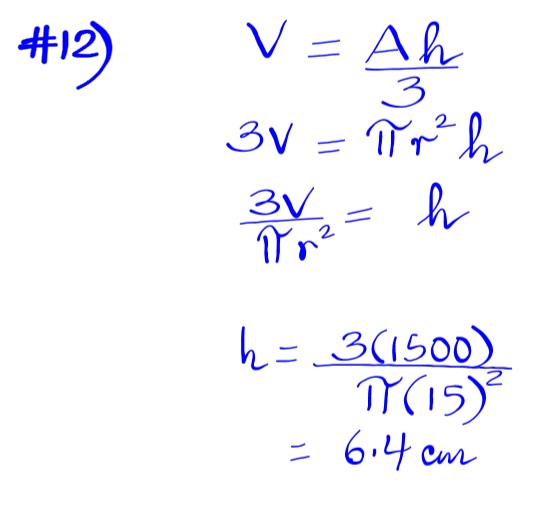 #12) V = Ah/3
3V = πr²h
3V/πr² = h
h = 3(1500)/π(15)²
= 6.4 cm